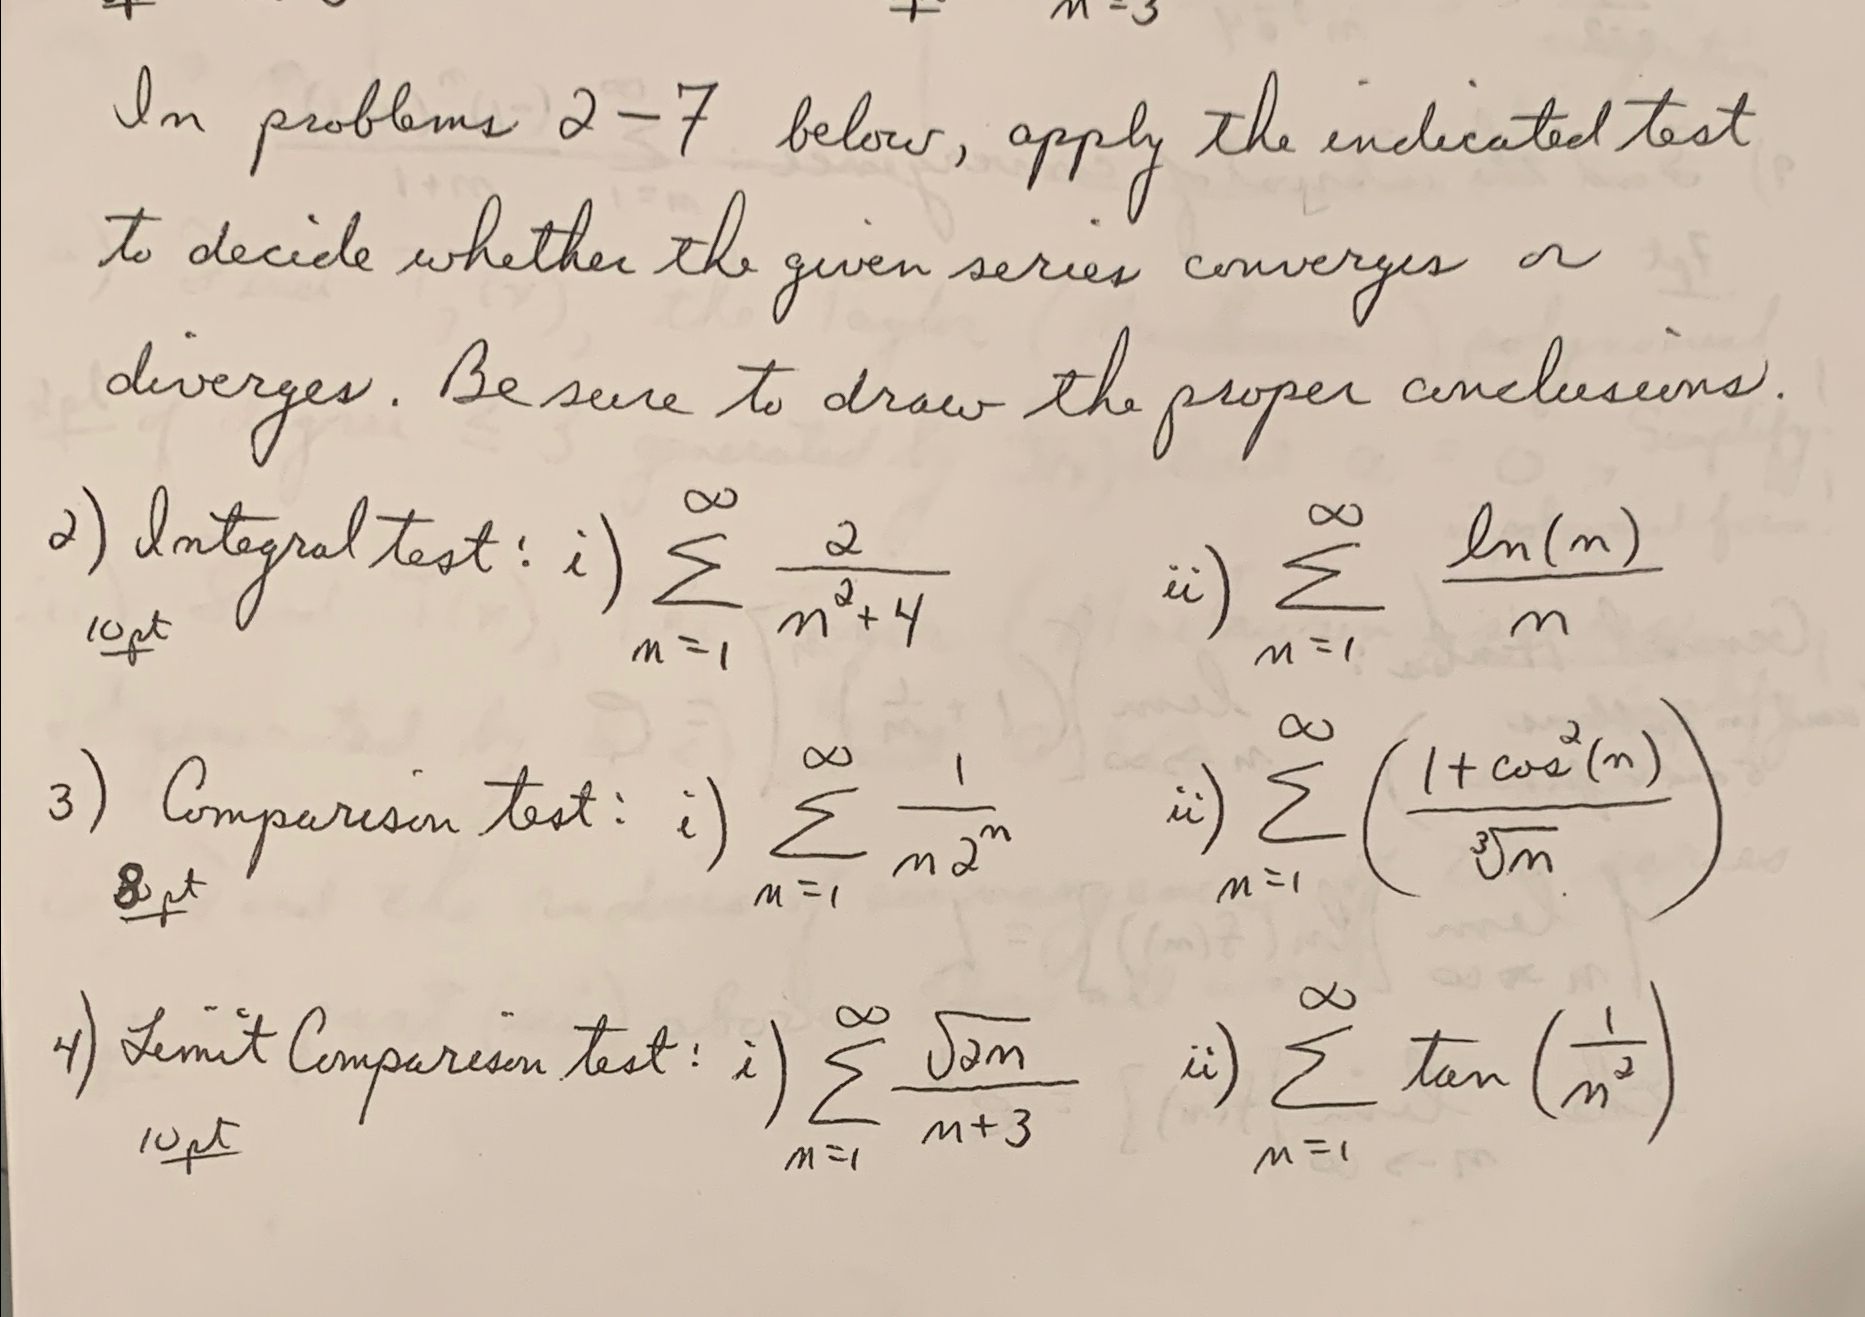 n=3
In problems 2-7 below, apply the indicated test
to decide whether the given series converges or
diverges. Be sure to draw the proper conclusions.
2) Integral test: i) ∞∑n=1 2/(n²+4) ii) ∞∑n=1 ln(n)/n
10pt
3) Comparison test: i) ∞∑n=1 1/(n2ⁿ) ii) ∞∑n=1 ((1+cos²(n))/∛n)
8pt
4) Limit Comparison test: i) ∞∑n=1 √(2n)/(n+3) ii) ∞∑n=1 tan(1/n²)
10pt